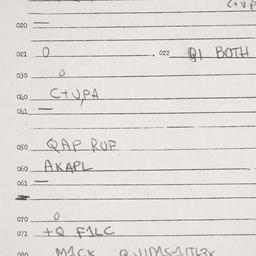 020 —
021 0 022 Q1 BOTH
030 0
040 C+V,PA
041 —
050 QAP RUF
060 AKAPL
061 —
070 0
071 +Q F1LC
080